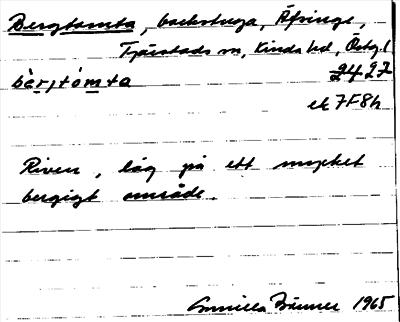 Bergtomta, backstuga, Äsinge,
Tjärstads sn, Kinda hd, Östg.l
bä̀rjtòmta 2427
ek 7F8h
Riven, låg på ett mycket
bergigt område.
Gunilla 1965